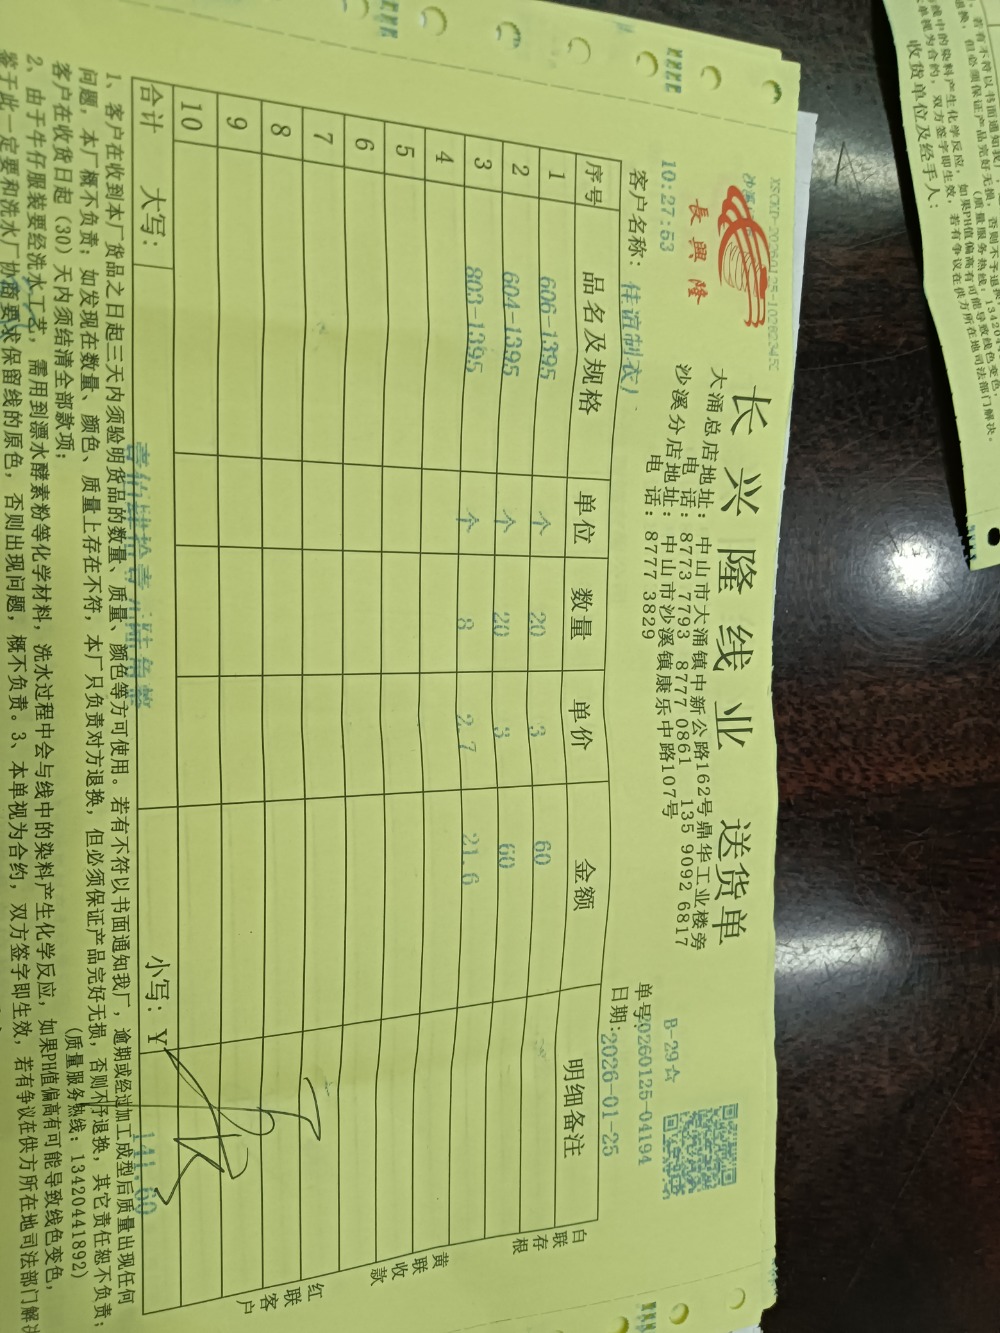 XSCKD-20260125-102623452
長興隆
10:27:53
长兴隆线业 送货单
大涌总店地址：中山市大涌镇中新公路162号鼎华工业楼旁
电 话：8773 7793 8777 0861 135 9092 6817
沙溪分店地址：中山市沙溪镇康乐中路107号
电 话：8777 3829
B-29☆
客户名称：佳谊制衣)
单号:20260125-04194
日期:2026-01-25
序号 品名及规格 单位 数量 单价 金额 明细备注
1 606-1395 个 20 3 60
2 604-1395 个 20 3 60
3 803-1395 个 8 2.7 21.6
4
5
6
7
8
9
10
合计 大写：壹佰肆拾壹元陆角整 小写：￥ 141.60
白联存根
黄联收款
红联客户
1、客户在收到本厂货品之日起三天内须验明货品的数量、质量、颜色等方可使用。若有不符以书面通知我厂，逾期或经过加工成型后质量出现任何
问题，本厂概不负责；如发现在数量、颜色、质量上存在不符，本厂只负责对方退换，但必须保证产品完好无损，否则不予退换，其它责任恕不负责；
客户在收货日起（30）天内须结清全部款项；
(质量服务热线：13420441892)
2、由于牛仔服装要经洗水工艺，需用到漂水酵素粉等化学材料，洗水过程中会与线中的染料产生化学反应，如果PH值偏高有可能导致线色变色，
鉴于此一定要和洗水厂协商要求保留线的原色，否则出现问题，概不负责。3、本单视为合约，双方签字即生效，若有争议在供方所在地司法部门解决
若有不符以书面通知我厂，
退换，但必须保证产品完好无损，否则不予退换
(质量服务热线：1342044
线中的染料产生化学反应，如果PH值偏高有可能导致线色变色，
单视为合约，双方签字即生效，若有争议在供方所在地司法部门解决。
收货单位及经手人：